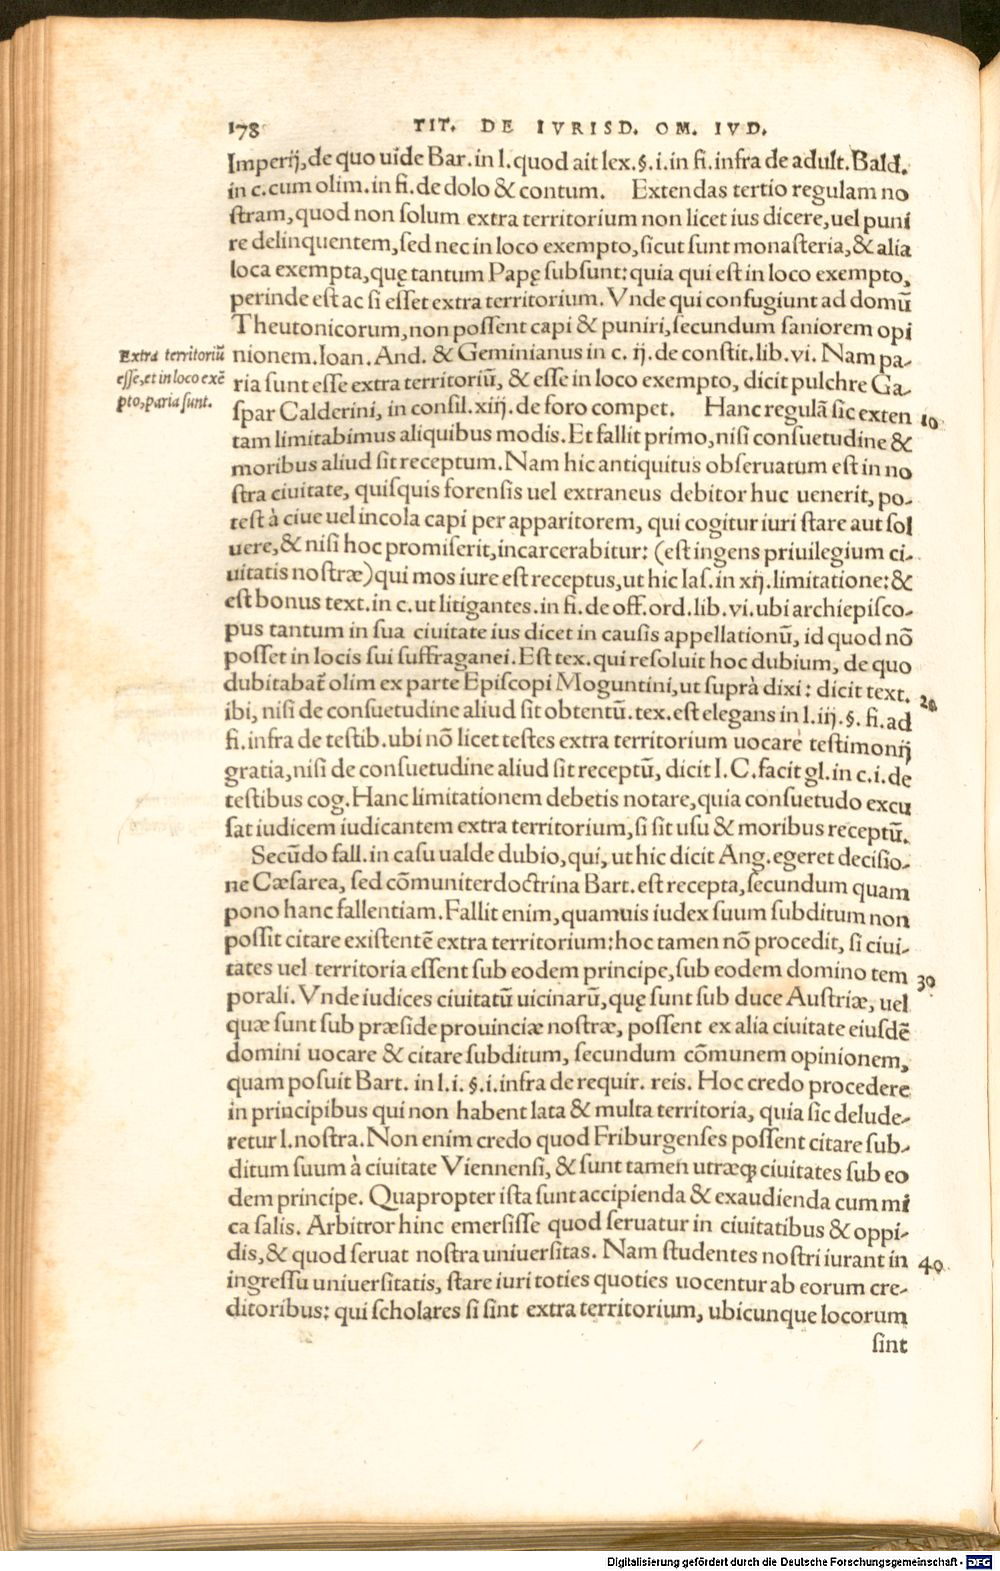 178 TIT. DE IVRISD. OM. IVD.
Imperij, de quo uide Bar. in l. quod ait lex. §. i. in fi. infra de adult. Bald.
in c. cum olim. in fi. de dolo & contum. Extendas tertio regulam no
stram, quod non solum extra territorium non licet ius dicere, uel puni
re delinquentem, sed nec in loco exempto, sicut sunt monasteria, & alia
loca exempta, quę tantum Papę subsunt: quia qui est in loco exempto,
perinde est ac si esset extra territorium. Vnde qui confugiunt ad domū
Theutonicorum, non possent capi & puniri, secundum saniorem opi
nionem. Ioan. And. & Geminianus in c. ij. de constit. lib. vi. Nam pa-
ria sunt esse extra territoriū, & esse in loco exempto, dicit pulchre Ga-
spar Calderini, in consil. xiij. de foro compet. Hanc regulā sic exten 10
tam limitabimus aliquibus modis. Et fallit primo, nisi consuetudine &
moribus aliud sit receptum. Nam hic antiquitus obseruatum est in no
stra ciuitate, quisquis forensis uel extraneus debitor huc uenerit, po-
test à ciue uel incola capi per apparitorem, qui cogitur iuri stare aut sol
uere, & nisi hoc promiserit, incarcerabitur: (est ingens priuilegium ci-
uitatis nostræ) qui mos iure est receptus, ut hic Ias. in xij. limitatione: &
est bonus text. in c. ut litigantes. in fi. de off. ord. lib. vi. ubi archiepisco-
pus tantum in sua ciuitate ius dicet in causis appellationū, id quod nō
posset in locis sui suffraganei. Est tex. qui resoluit hoc dubium, de quo
dubitabat̄ olim ex parte Episcopi Moguntini, ut suprà dixi: dicit text. 20
ibi, nisi de consuetudine aliud sit obtentū. tex. est elegans in l. iij. §. fi. ad
fi. infra de testib. ubi nō licet testes extra territorium uocare testimonij
gratia, nisi de consuetudine aliud sit receptū, dicit I. C. facit gl. in c. i. de
testibus cog. Hanc limitationem debetis notare, quia consuetudo excu
sat iudicem iudicantem extra territorium, si sit usu & moribus receptū.
Secūdo fall. in casu ualde dubio, qui, ut hic dicit Ang. egeret decisio-
ne Cæsarea, sed cōmuniter doctrina Bart. est recepta, secundum quam
pono hanc fallentiam. Fallit enim, quamuis iudex suum subditum non
possit citare existentē extra territorium: hoc tamen nō procedit, si ciui-
tates uel territoria essent sub eodem principe, sub eodem domino tem 30
porali. Vnde iudices ciuitatū uicinarū, quę sunt sub duce Austriæ, uel
quæ sunt sub præside prouinciæ nostræ, possent ex alia ciuitate eiusdē
domini uocare & citare subditum, secundum cōmunem opinionem,
quam posuit Bart. in l. i. §. i. infra de requir. reis. Hoc credo procedere
in principibus qui non habent lata & multa territoria, quia sic delude-
retur l. nostra. Non enim credo quod Friburgenses possent citare sub-
ditum suum à ciuitate Viennensi, & sunt tamen utræq; ciuitates sub eo
dem principe. Quapropter ista sunt accipienda & exaudienda cum mi
ca salis. Arbitror hinc emersisse quod seruatur in ciuitatibus & oppi-
dis, & quod seruat nostra uniuersitas. Nam studentes nostri iurant in 40
ingressu uniuersitatis, stare iuri toties quoties uocentur ab eorum cre-
ditoribus: qui scholares si sint extra territorium, ubicunque locorum
sint
Extra territoriū
esse, et in loco exē
pto, paria sunt.
Digitalisierung gefördert durch die Deutsche Forschungsgemeinschaft - DFG